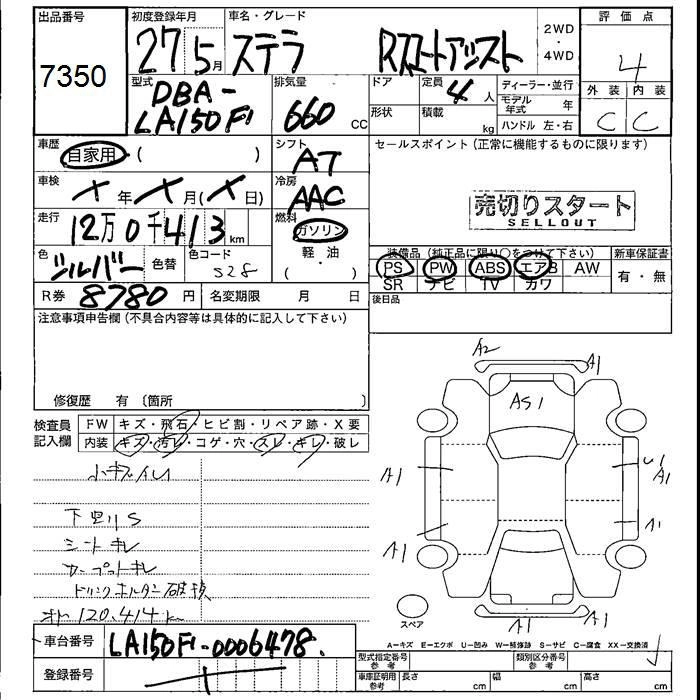 出品番号
7350
初度登録年月
27 5月
車名・グレード
ステラ Rスマートアシスト
2WD
・
4WD
評価点
4
型式
DBA-
LA150F
排気量
660 CC
ドア
形状
定員
4 人
積載
kg
ディーラー・並行
モデル
年式 年
ハンドル 左・右
外装 内装
C C
車歴
自家用 ( )
シフト
AT
セールスポイント (正常に機能するものに限ります)
売切りスタート
SELLOUT
車検
X 年 X 月(X 日)
冷房
AAC
走行
12万0千413 km
燃料
ガソリン
軽・油
( ・ )
色
シルバー
色替
色コード
S28
装備品 (純正品に限り○をつけて下さい)
PS PW ABS エアB AW
SR ナビ TV カワ
新車保証書
有・無
R券 8780 円
名変期限 月 日
後日品
注意事項申告欄 (不具合内容等は具体的に記入して下さい)
修復歴 有 〔箇所 〕
検査員
記入欄
FW キズ・飛石・ヒビ割・リペア跡・X要
内装 キズ・汚レ・コゲ・穴・スレ・キレ・破レ
小キズイレ
下廻りS
シートキレ
カーペットキレ
ドリンクホルダー破損
オト120,414km
A2
A1
AS1
A1
U1
A1
A1
A1
A1
A1
スペア
A=キズ E=エクボ U=凹み W=補修跡 S=サビ C=腐食 XX=交換済
車台番号
LA150F-0006478
登録番号
型式指定番号
参考
類別区分番号
参考
車庫証明用
参考
長さ cm
幅 cm
高さ cm